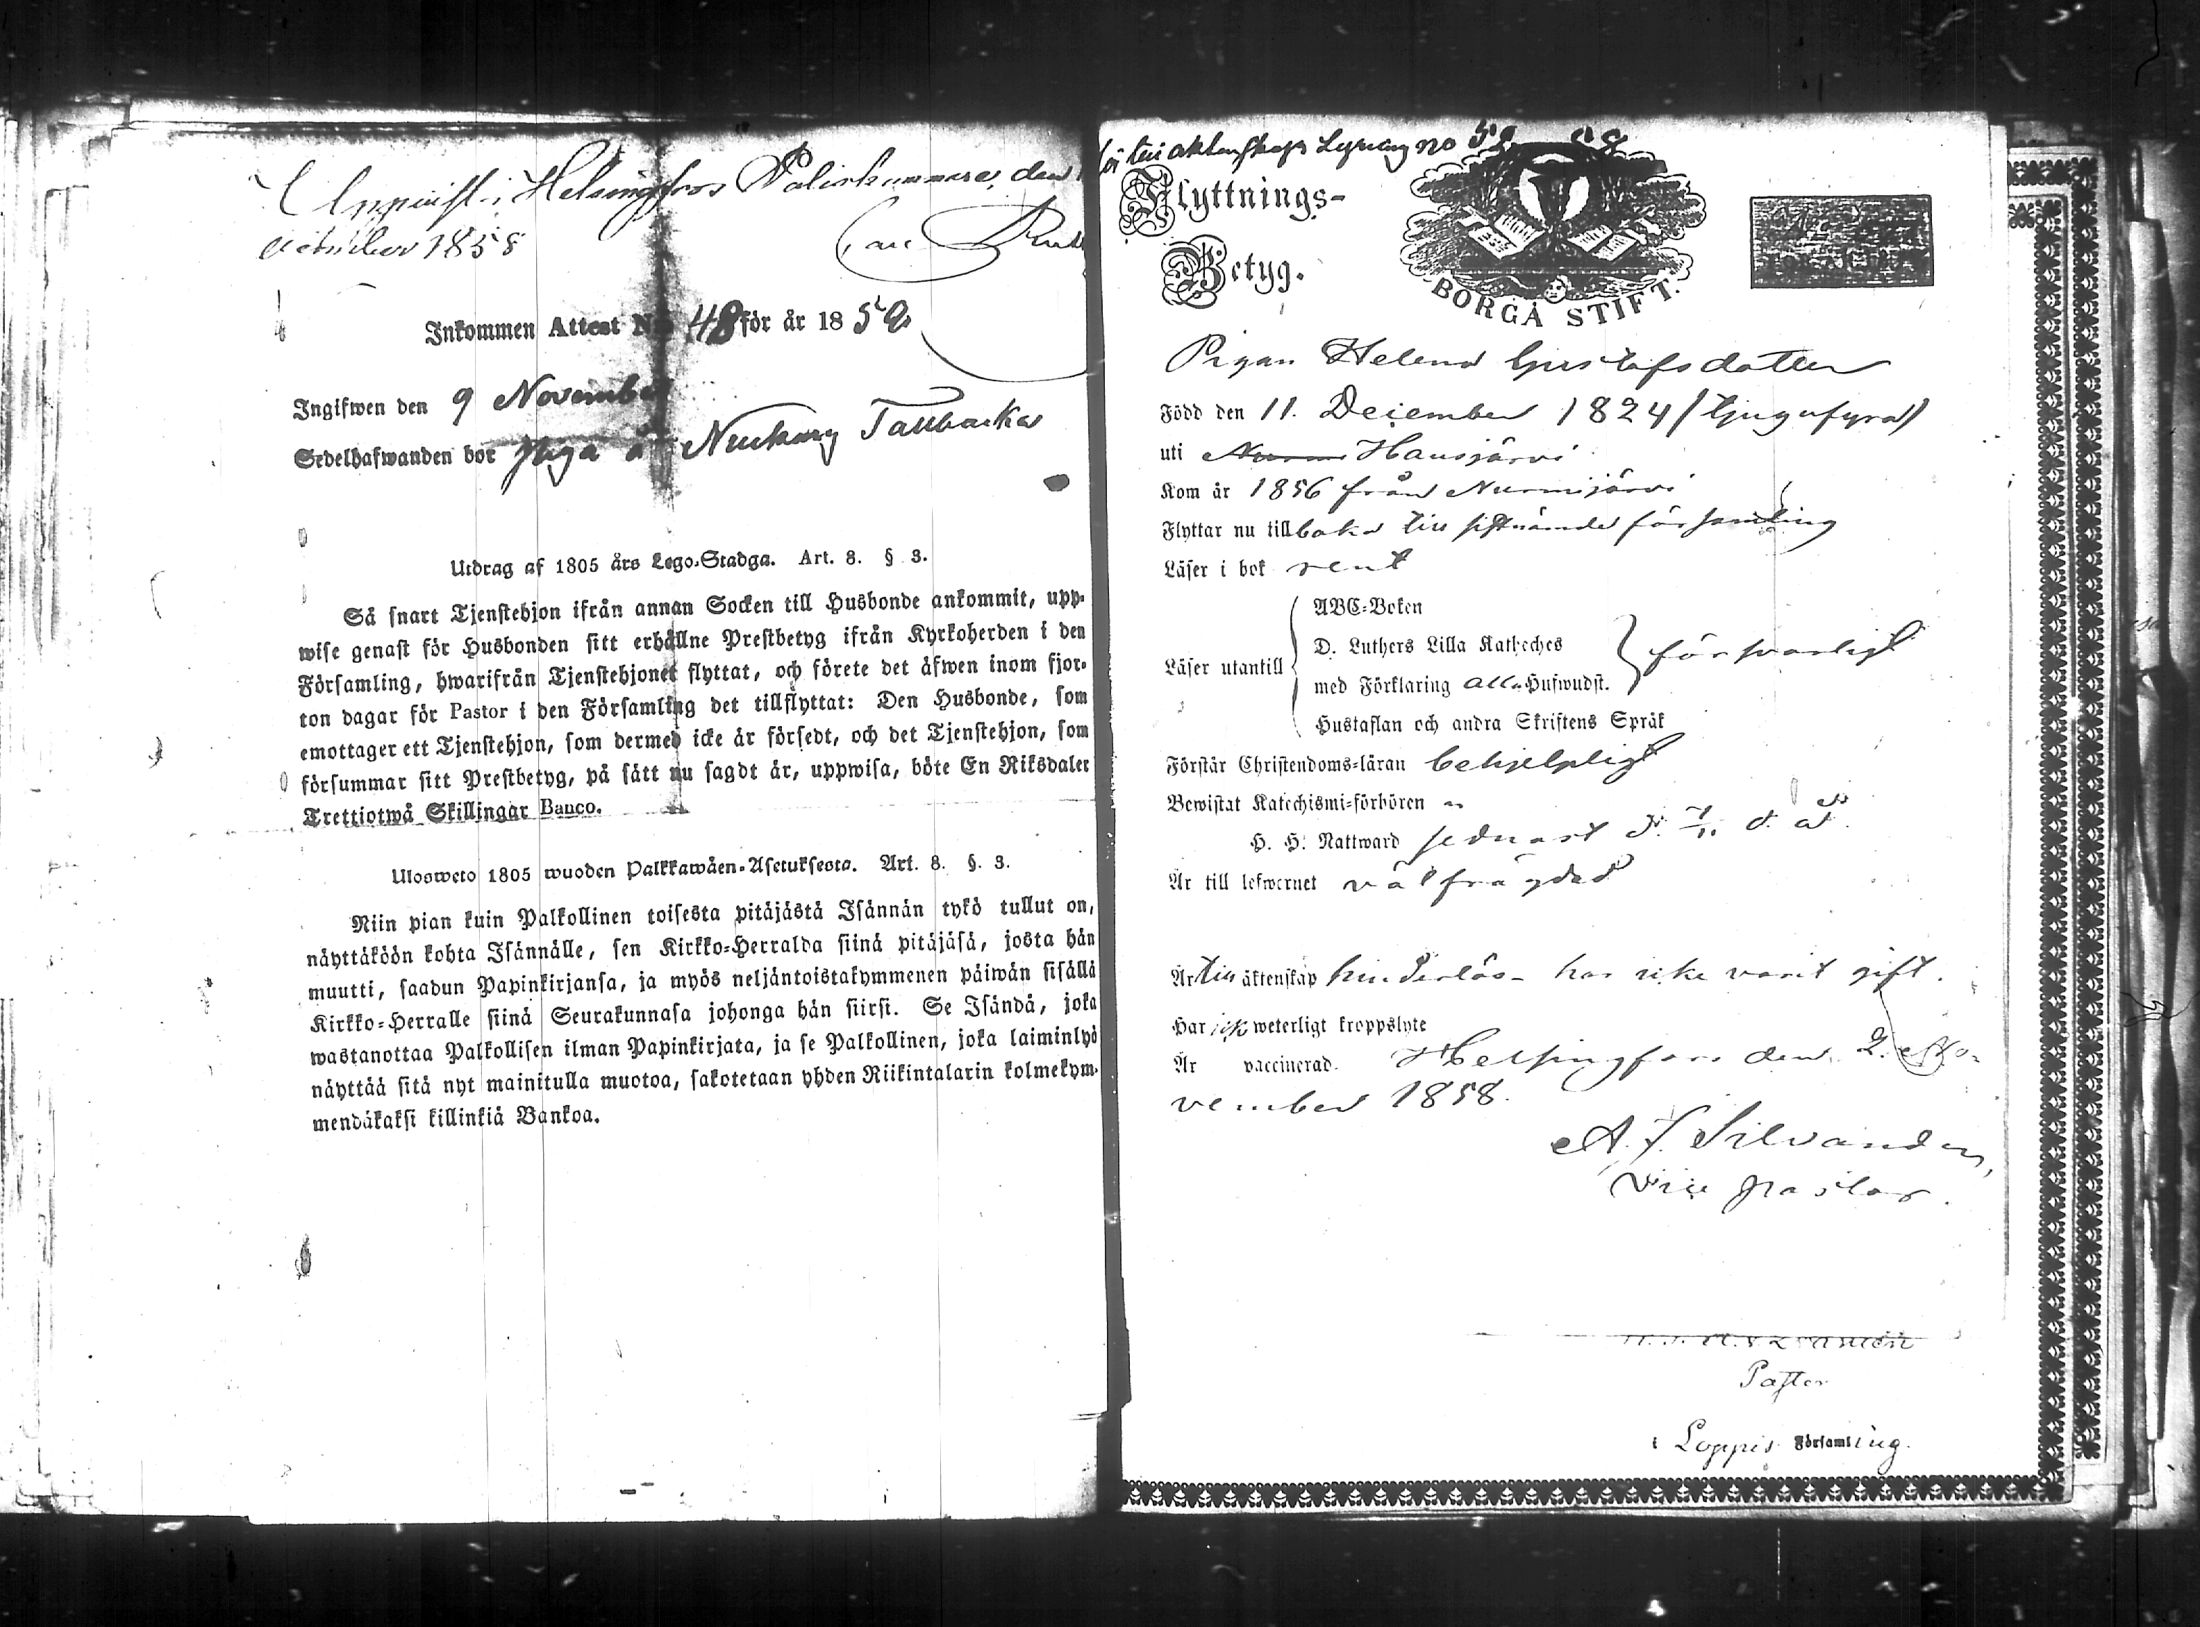 Uppvist i Helsingfors Poliskammare, den
vember 1858
Carl
Inkommen Attest No 48 för år 1859
Ingifwen den 9 November
Sedelhafwanden bor Piga å Nackby Tallbacka
Utdrag af 1805 års Lego-Stadga. Art. 8. § 3.
Så snart Tjenstehjon ifrån annan Socken till Husbonde ankommit, upp-
wise genast för Husbonden sitt erhållne Prestbetyg ifrån Kyrkoherden i den
Församling, hwarifrån Tjenstehjonet flyttat, och förete det äfwen inom fjor-
ton dagar för Pastor i den Församling det tillflyttat: Den Husbonde, som
emottager ett Tjenstehjon, som dermed icke är försedt, och det Tjenstehjon, som
försummar sitt Prestbetyg, på sätt nu sagdt är, uppwisa, böte En Riksdaler
Trettiotwå Skillingar Banco.
Ulosweto 1805 wuoden Palkkawäen-Asetuksesta. Art. 8. §. 3.
Niin pian kuin Palkollinen toisesta pitäjästä Isännän tykö tullut on,
näyttäköön kohta Isännälle, sen Kirkko-Herralda siinä pitäjäsä, josta hän
muutti, saadun Papinkirjansa, ja myös neljäntoistakymmenen päiwän sisällä
Kirkko-Herralle siinä Seurakunnasa johonga hän siirsi. Se Isändä, joka
wastanottaa Palkollisen ilman Papinkirjata, ja se Palkollinen, joka laiminlyö
näyttää sitä nyt mainitulla muotoa, sakotetaan yhden Riikintalarin kolmekym-
mendäkaksi killinkiä Bankoa.
till äktenskaps Lysning no 59
Flyttnings-
Betyg.
BORGÅ STIFT.
Pigan Helena Gustafsdotter
Född den 11. December 1824 /tjugufyra/
uti Hausjärvi
Kom år 1856 från Nurmijärvi
Flyttar nu tillbaka till sistnämnde församling
Läser i bok rent
ABC-Boken
D. Luthers Lilla Katheches
Läser utantill försvarligt
med Förklaring alla Hufwudst.
Hustaflan och andra Skriftens Språk
Förstår Christendoms-läran behjelpligt
Bewistat Katechismi-förhören
H. H. Nattward sednast d. 7/11 d. å.
Är till lefwernet välfrägdad
Är till äktenskap hinderlös - har icke varit gift.
Har icke weterligt kroppslyte
Är vaccinerad. Helsingfors den 2. No-
vember 1858.
A. F. Silvander,
Vice pastor.
Pastor
i Loppis Församling.